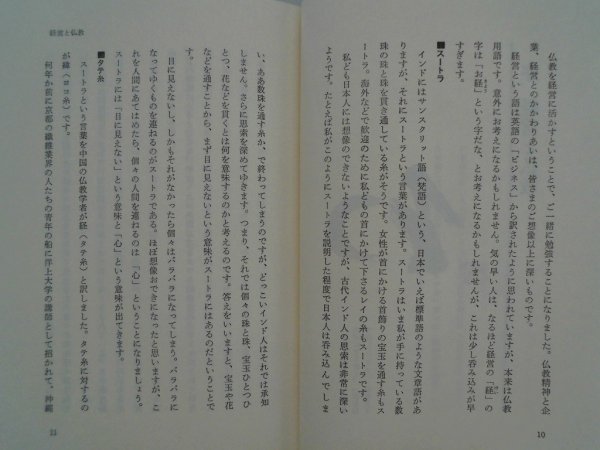 仏教を経営に活かすということで、ご一緒に勉強することになりました。仏教精神と企
業、経営とのかかわりあいは、皆さまのご想像以上に深いものです。
経営という語は英語の「ビジネス」から訳されたように思われていますが、本来は仏教
用語です。意外にお考えになるかもしれません。気の早い人は、なるほど経営の「経」の
字は「お経」という字だな、とお考えになるかもしれませんが、これは少し呑み込みが早
すぎます。
■スートラ
インドにはサンスクリット語（梵語）という、日本でいえば標準語のような文章語があ
りますが、それにスートラという言葉があります。スートラはいま私が手に持っている数
珠の珠と珠を貫き通している糸がそうです。女性が首にかける首飾りの宝玉を通す糸もス
ートラ。海外などで歓迎のために私どもの首にかけて下さるレイの糸もスートラです。
私ども日本人には想像のできないようなことですが、古代インド人の思索は非常に深い
ようです。たとえば私がこのようにスートラを説明した程度で日本人は呑み込んでしま
10
経営と仏教
い、ああ数珠を通す糸か、で終わってしまうのですが、どっこいインド人はそれでは承知
しません。さらに思索を深めてゆきます。つまり、それでは個々の珠と珠、宝玉ひとつひ
とつ、花などを貫くとは何を意味するのかと考えるのです。答えをいいますと、宝玉や花
などを通すことから、まず目に見えないという意味がスートラにはあるのだということで
す。
目に見えないし、しかもそれがなかったら個々はバラバラになってしまう。バラバラに
なってゆくものを連ねるのがスートラである。ほぼ想像おできになったと思いますが、こ
れを人間にあてはめたら、個々の人間を連ねるのは「心」ということになりましょう。
スートラには「目に見えない」という意味と「心」という意味が出てきます。
■タテ糸
スートラという言葉を中国の仏教学者が経（タテ糸）と訳しました。タテ糸に対するの
が緯（ヨコ糸）です。
何年か前に京都の繊維業界の人たちの青年の船に洋上大学の講師として招かれて、沖縄